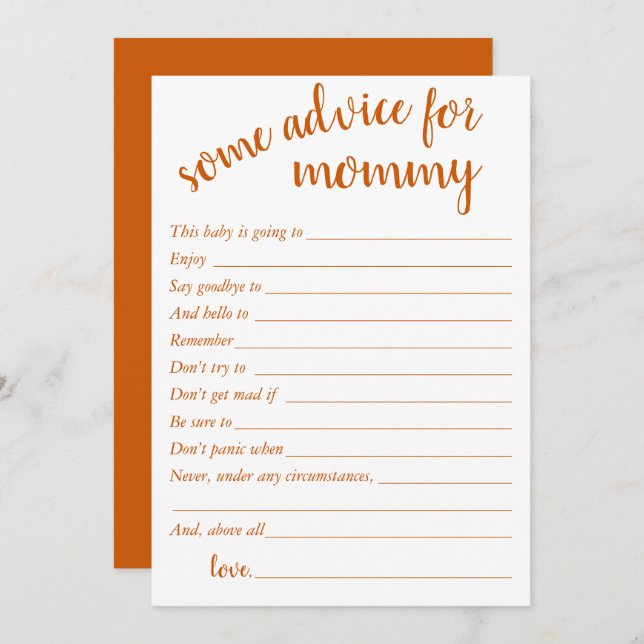 some advice for
mommy
This baby is going to
Enjoy
Say goodbye to
And hello to
Remember
Don't try to
Don't get mad if
Be sure to
Don't panic when
Never, under any circumstances,
And, above all
love,